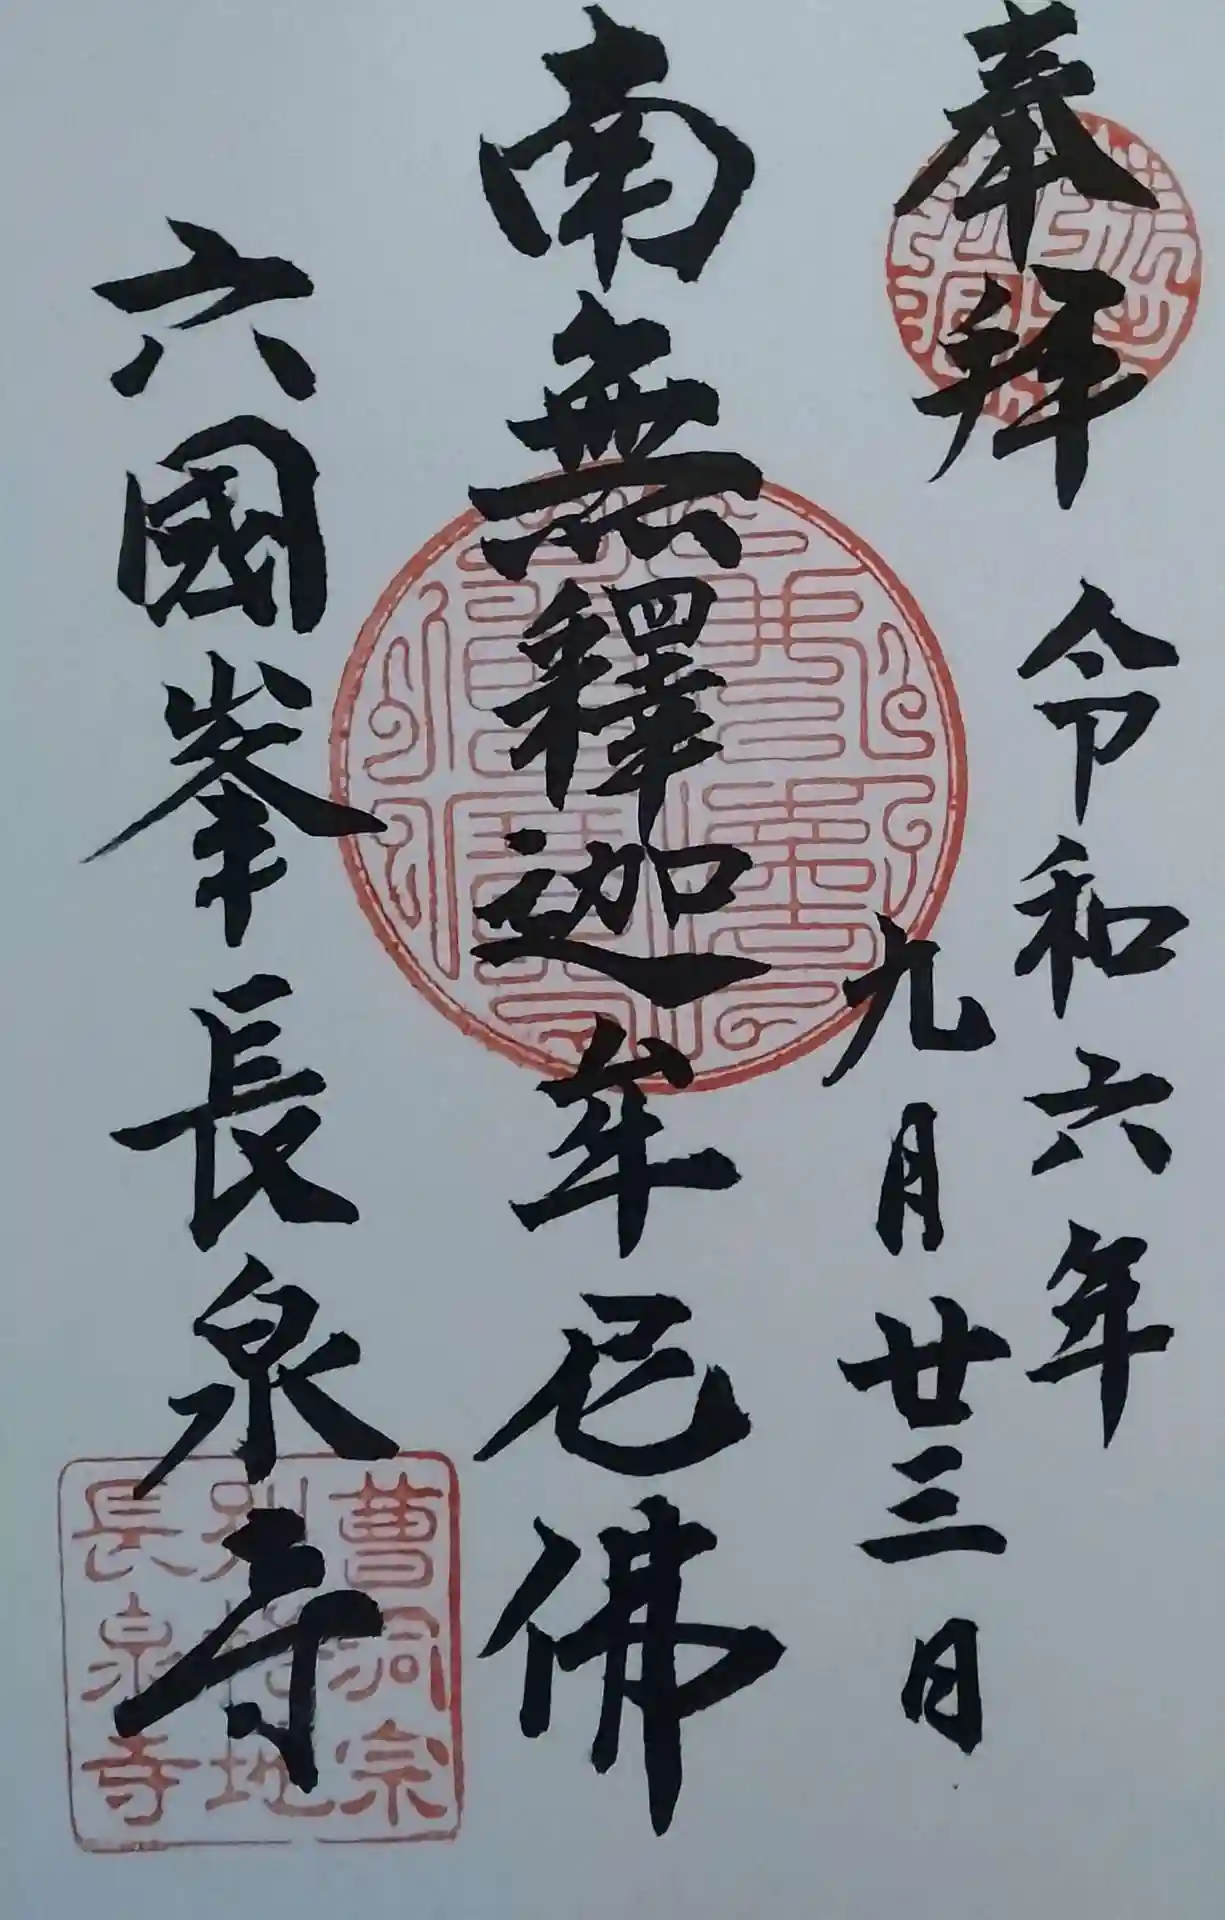 奉拜
令和六年
九月廿三日
南無釋迦牟尼佛
六國峯長泉寺
曹洞宗
別格地
長泉寺